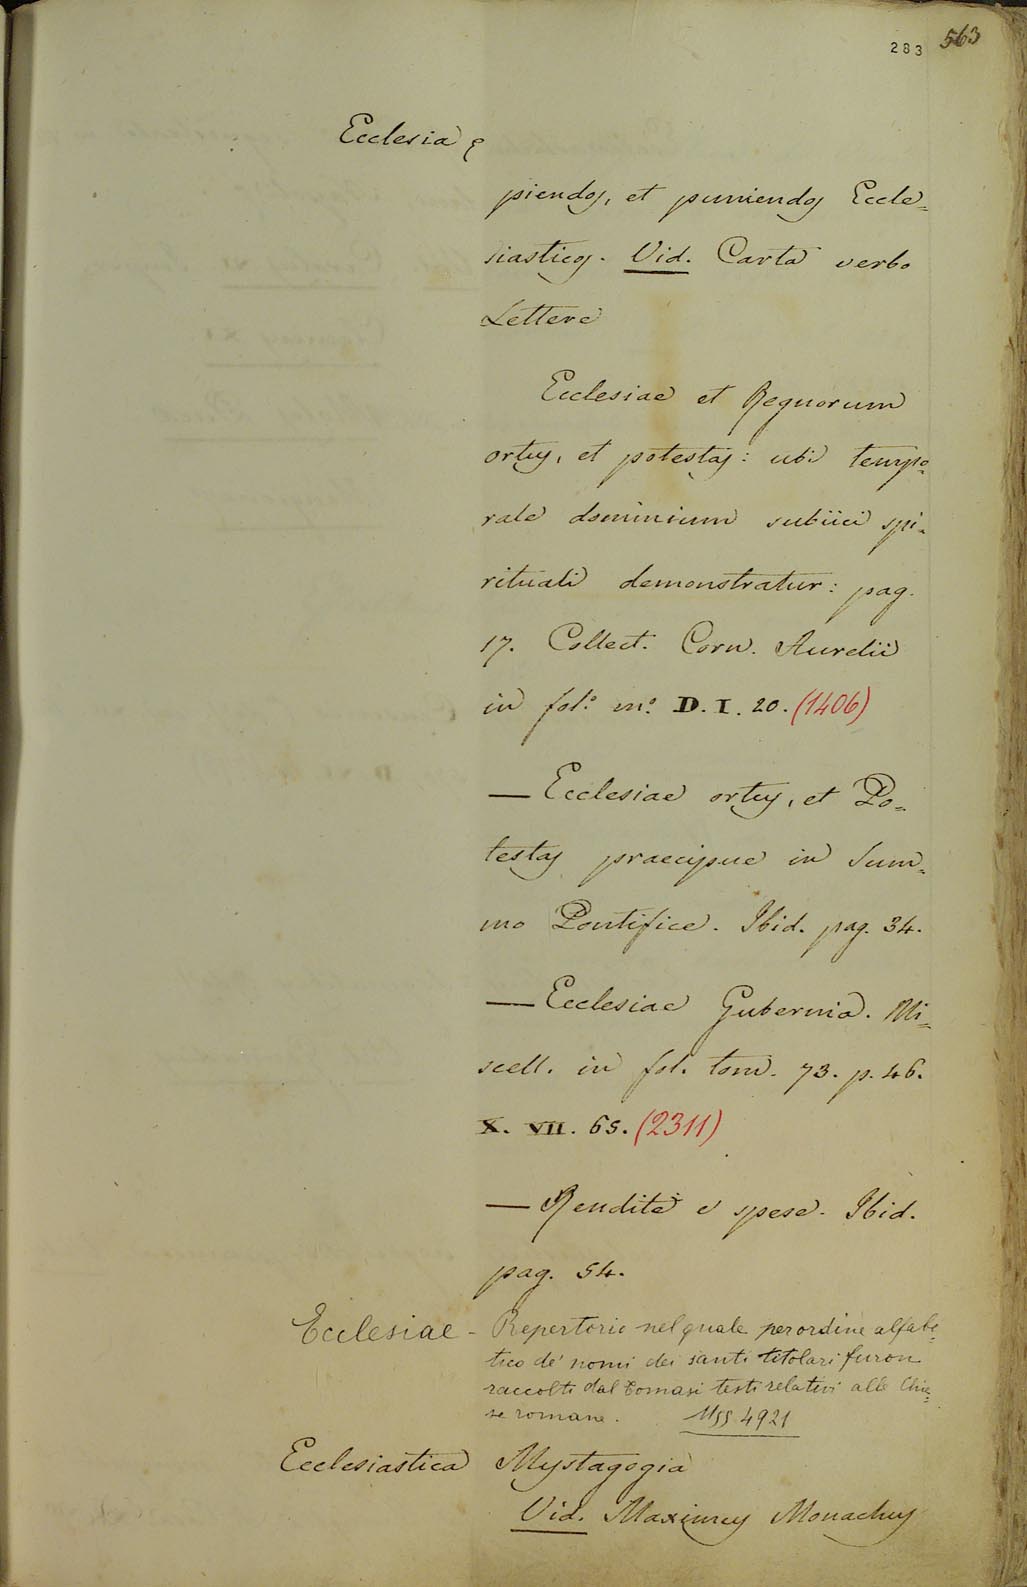 283 563
Ecclesia
piendos, et puniendos Eccle=
siasticos. Vid. Carta verbo
Lettere
Ecclesiae et Regnorum
ortus, et potestas: ubi tempo=
rale dominium subiici spi=
rituali demonstratur: pag.
17. Collect. Corn. Aurelii
in fol.º m.º D. I. 20. (1406)
— Ecclesiae ortus, et Po=
testas praecipue in Sum=
mo Pontifice. Ibid. pag. 34.
— Ecclesiae Gubernia. Mi=
scell. in fol. tom. 73. p. 46.
X. VII. 65. (2311)
— Rendite e spese. Ibid.
pag. 54.
Ecclesiae - Repertorio nel quale per ordine alfabe=
tico de' nomi dei santi titolari furon
raccolti dal Tomasi testi relativi alle Chie=
se romane. Mss. 4921
Ecclesiastica Mystagogia
Vid. Maximus Monachus